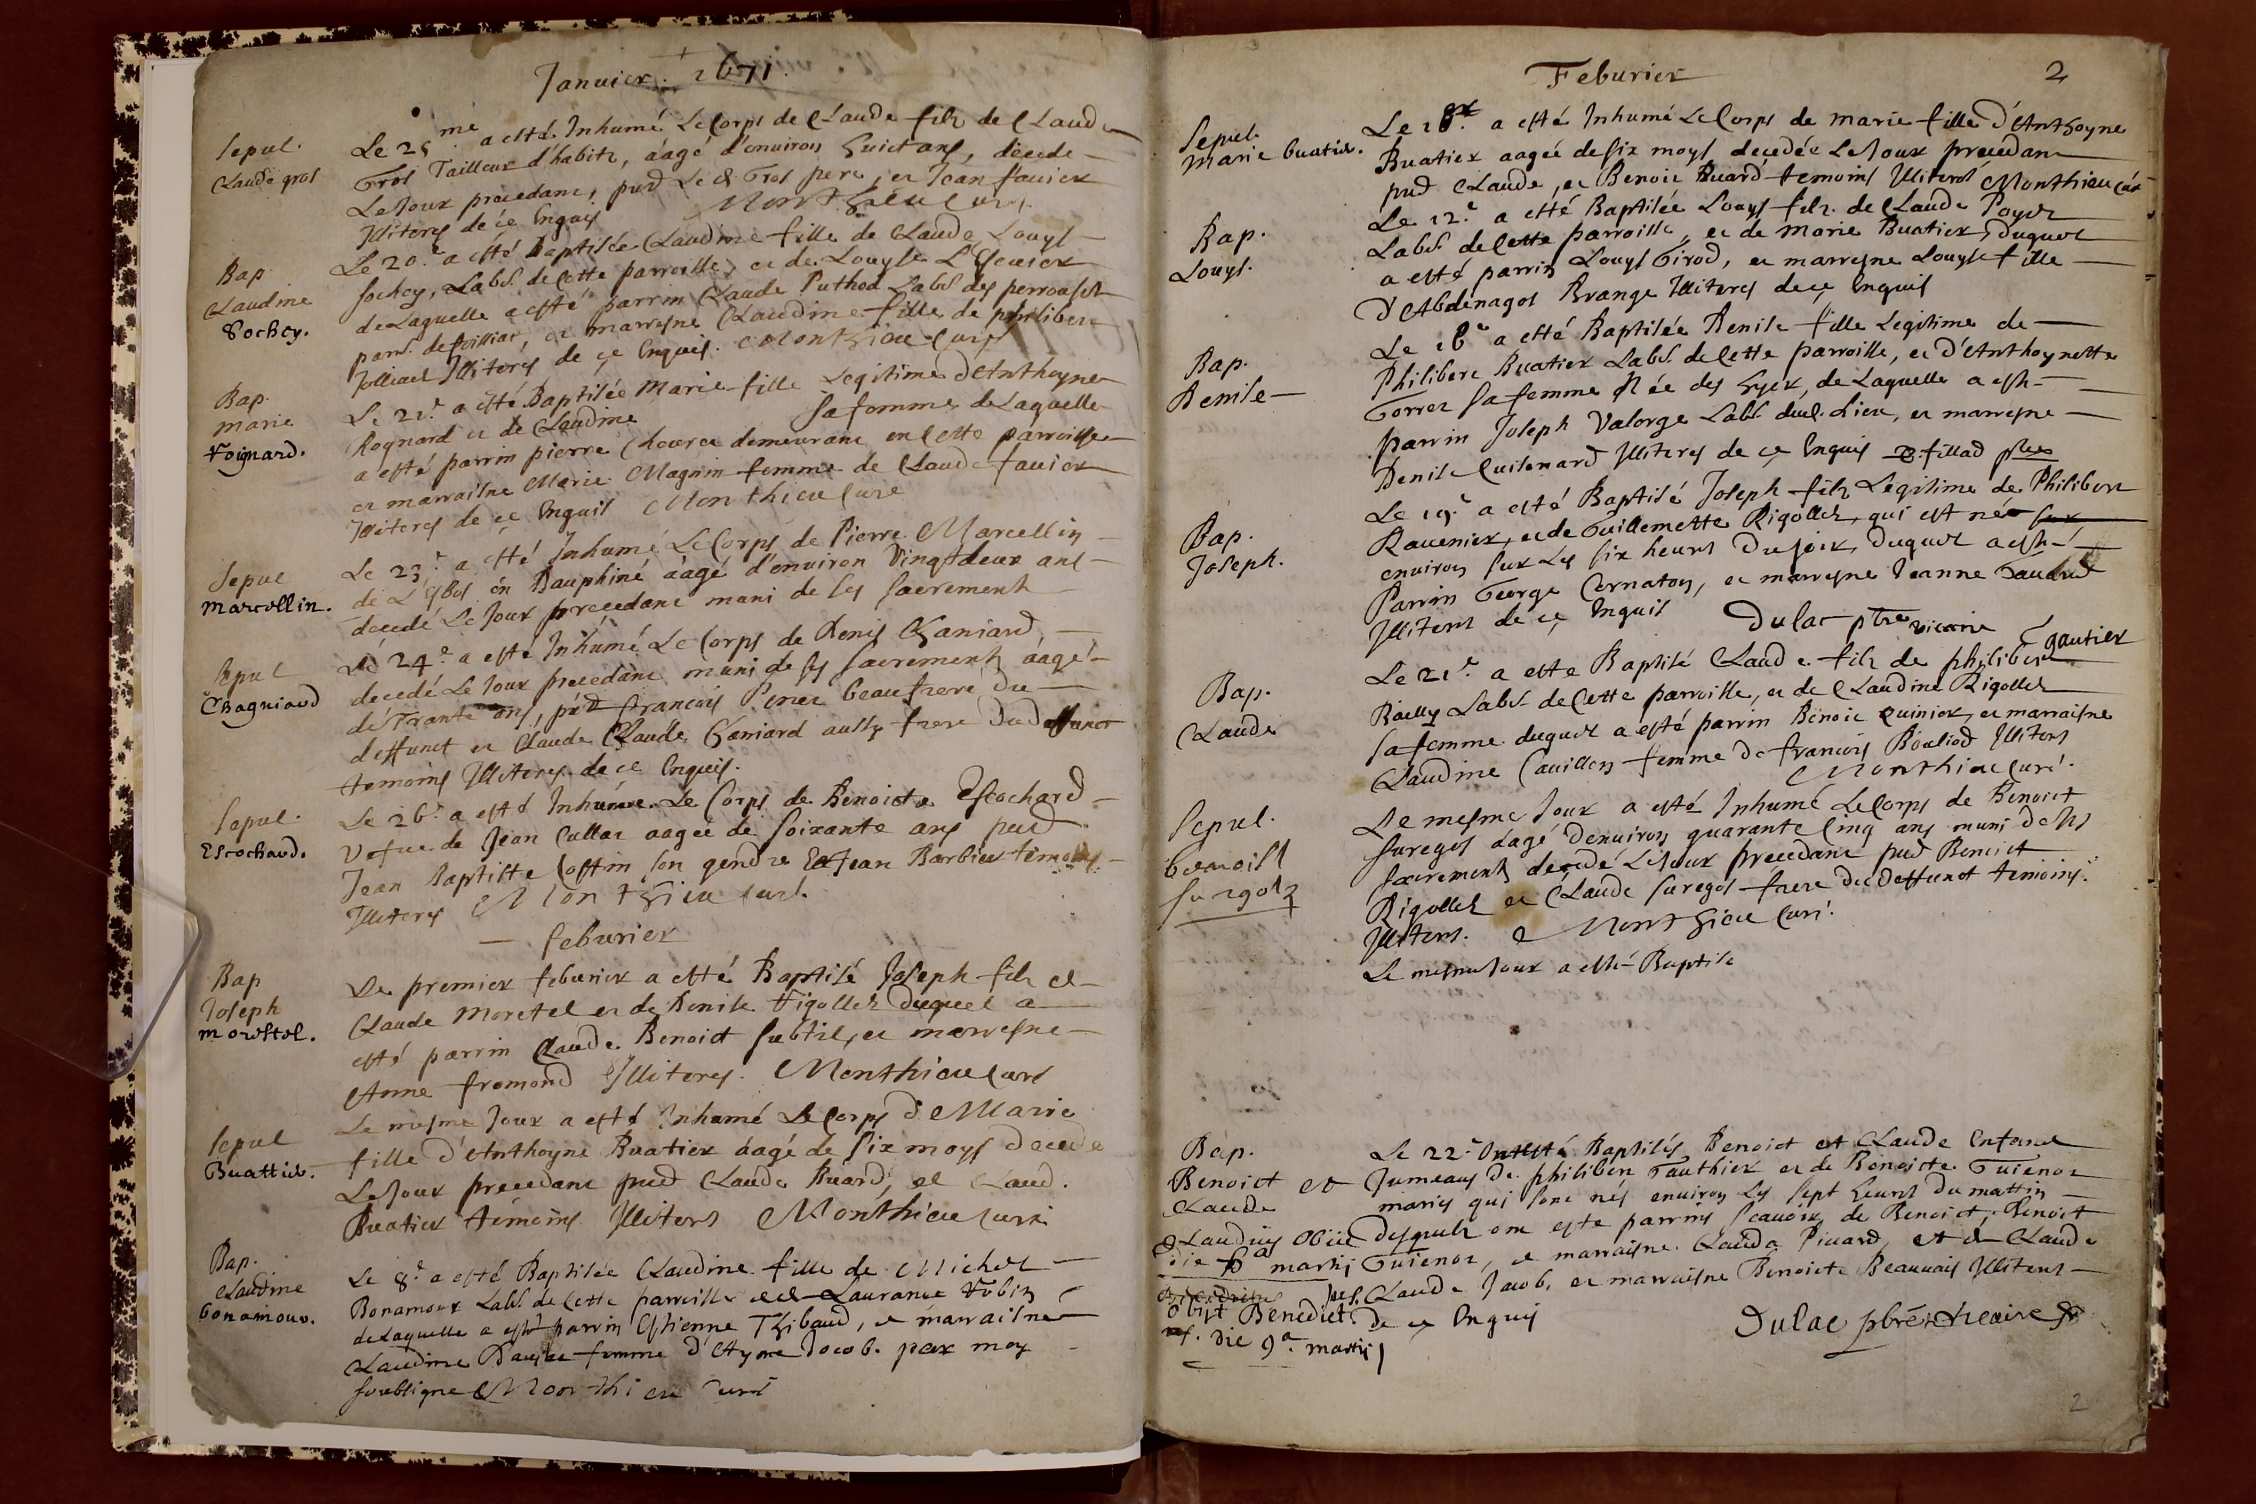 Januier. 1671.
Sepul.
Claude gros
Le 25me a esté Inhumé Le Corps de Claude filz de Claude
Gros Tailleur d'habitz, aagé d'enuiron huict ans, décedé
Le Jour precedant, pnd Le d Gros pere, et Jean fauier
Illiteres de ce Enquis Monthieu Curé
Bap
Claudine
Sochey.
Le 20.e a esté Baptisée Claudine fille de Claude Louys
Sochey, Labr. de Cette parroisse, et de Louyse
de Laquelle a esté parrin Claude Puthod Labr. des perrouses
parr. de, et marresne Claudine fille de philibert
Jolliard Illiteres de ce Enquis. Monthieu Curé
Bap.
marie
Rognard.
Le 21.e a esté Baptisée Marie fille Legitime d'Anthoyne
Rognard et de Claudine sa femme de Laquelle
a esté parrin pierre demeurant en Cette parroisse
et marraisne Marie Magnin femme de Claude fauier
Illiteres de ce Enquis Monthieu Curé
Sepul
Marcellin.
Le 23.e a esté Inhumé Le Corps de Pierre Marcellin
de en Dauphiné aagé d'enuiron Vingtdeux ans
decedé Le Jour precedant muni de ses Sacrements
Sepul
Chagniard
Le 24.e a esté Inhumé Le Corps de Denis Chaniard,
decedé Le Jour precedant muni de ses Sacrements aagé
de Trante ans, pnd francois beaufrere du
deffunct et Claude Claude Chaniard aussy frere dud deffunct
temoins Illiteres de ce Enquis.
Sepul.
Escochard.
Le 26.e a esté Inhumee Le Corps de Benoicte Escochard
Vefue de Jean Cullat aagée de Soixante ans pnd
Jean Baptiste Coffin son gendre Et Jean Barbier temoins
Illiteres Monthieu Curé.
feburier
Bap
Joseph
morettel.
Le premier feburier a esté Baptisé Joseph filz de
Claude Moretel et de Denise Rigollet duquel a
esté parrin Claude Benoict Subtil, et marresne
Anne fromond Illiteres. Monthieu Curé
Sepul
Buattier.
Le mesme Jour a esté Inhumé Le Corps de Marie
fille d'Anthoyne Buatier aagé de Six moys decedé
Le Jour precedant pnd Claude Buard et Claud.
Buatier témoins Illiteres Monthieu Curé
Bap.
Claudine
bonamour.
Le 8.e a esté Baptisée Claudine fille de Michel
Bonamour Labr. de Cette parroisse et de Laurance Robin
de Laquelle a esté parrin Estienne Thibaud, et marraisne
Claudine femme d'Ayme Jacob. par moy
soubsigne Monthieu Curé
Feburier 2
Sepul.
marie buatier.
Le a esté Inhumé Le Corps de marie fille d'Anthoyne
Buatier aagée de six moys decedée Le Jour precedant
pnd Claude, et Benoit Buard temoins Illiteres Monthieu Curé
Bap.
Louys.
Le 12.e a esté Baptisée Louys filz. de Claude Poyet
Labr. de Cette parroisse, et de Marie Buatier, duquel
a esté parrin Louys Girod, et marresne Louyse fille
d'Abdenagos Brange Illiteres de ce Enquis
Bap.
Denise
Le 16.e a esté Baptisée Denise fille Legitime de
Philibert Buatier Labr. de Cette parroisse, et d'Anthoynette
Gorrez sa femme Née des hyer, de Laquelle a esté
parrin Joseph Valorge Labr. dud. Lieu, et marresne
Denise Cuisenard Illiteres de ce Enquis
Bap.
Joseph.
Le 19.e a esté Baptisé Joseph filz Legitime de Philibert
Rauenier, et de Guillemette Rigollet, qui est né sur
enuiron sur Les six heures du soir, duquel a esté
Parrin George Cernaton, et marresne Jeanne
Illiteres de ce Enquis Dulac ptre vicaire
Bap.
Claude
Le 21.e a esté Baptisé Claude filz de philibert gautier
Labr. de Cette parroisse, et de Claudine Rigollet
sa femme duquel a esté parrin Benoit Quinier, et marraisne
Claudine Cauillon femme de francois Bouliod Illiteres
Monthieu Curé.
Sepul.
benoist
suregotz
Le mesme Jour a esté Inhumé Le Corps de Benoict
Suregos aagé d'enuiron quarante Cinq ans muni de ses
sacrements decedé Le Jour precedant pnd Benoict
Rigollet et Claude Suregos frere du deffunct temoins.
Illiteres. Monthieu Curé.
Le mesme Jour a esté Baptise
Bap.
Benoict et
Claude
Le 22.e esté Baptisés Benoict et Claude Enfans
Jumeaus de philibert Gauthier et de Benoicte Guienot
mariés qui sont nés enuiron Les sept heures du mattin
desquels ont este parrins scauoir de Benoict, Benoit
Guienot, et marraisne Claude Piuard, et de Claude
Claude Jacob, et marraisne Benoicte Beauuais Illiteres
de ce Enquis
Claudius Obiit
die martij
obijt Benedictus
die 9.a martij
Dulac pbre vicaire
2